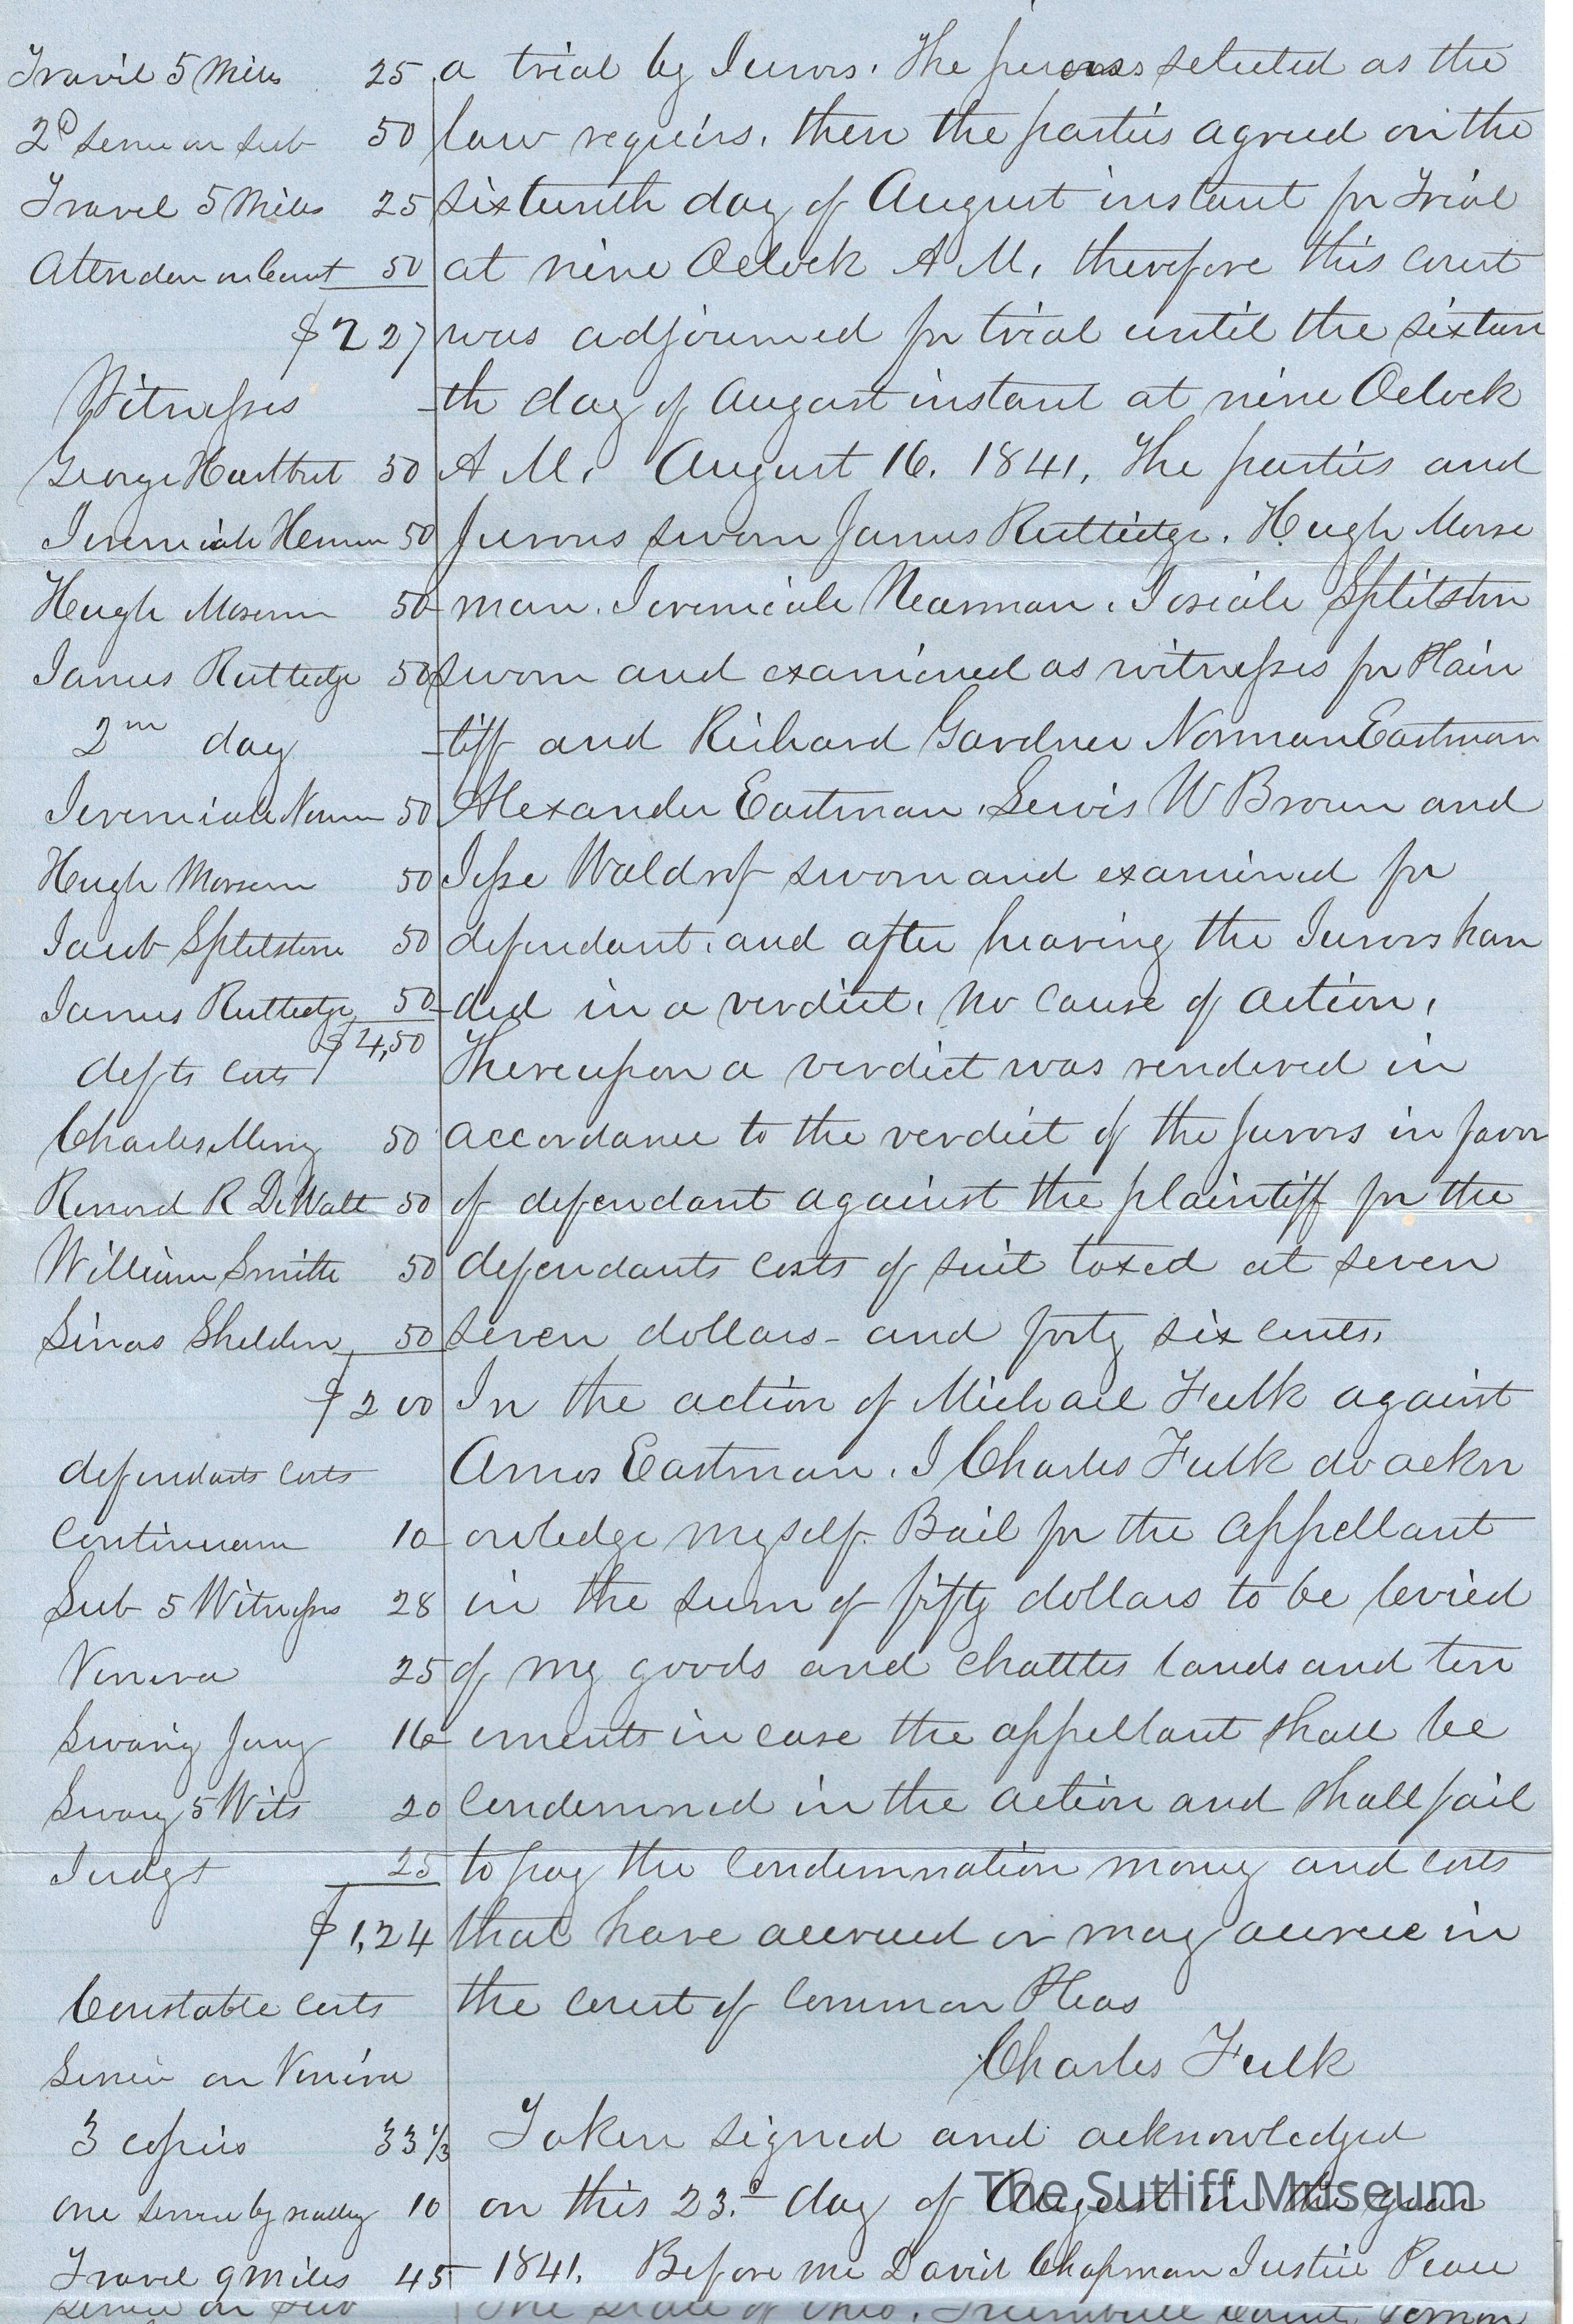 Travil 5 Miles 25
2d serve on sub 50
Travel 5 Miles 25
Atenden on Court 50
$2 27
Witnesses
George Hartbut 50
Jeremiah 50
Hugh 50
James Ruttedge 50
2nd day
Jeremiah 50
Hugh 50
Jacob Spletstone 50
James Ruttedge 50
$4,50
defts costs
Charles Meny 50
R DeWalt 50
William Smith 50
Linas Sheldin 50
$2 00
defendants costs
Continuam 10
Sub 5 Witnesses 28
Venira 25
Swaring Jury 16
Swaring 5 Wits 20
Judgt 25
$1,24
Constable costs
Service on Venira
3 copies 33 1/3
one service by reading 10
Travel 9 miles 45
service on sub
a trial by Jurors. The jurors selected as the
law requirs. then the parties agreed on the
sixteenth day of August instant for Trial
at nine Oclock A M, therefore this court
was adjourned for trial until the sixteen
th day of August instant at nine Oclock
A M, August 16. 1841. The parties and
Jurors sworn James Ruttledge. Hugh Morse
man. Jeremiah Nearman. Josiah Spletston
sworn and examioned as witnesses for Plain
tiff and Richard Gardner Norman Eastman
Alexander Eastman. Lewis W Brown and
Jesse Waldrof sworn and examined for
defendant. and after hearing the Jurors han
ded in a verdict. No cause of action.
Thereupon a verdict was rendered in
accordance to the verdict of the Jurors in favor
of defendant against the plaintiff for the
defendants costs of suit taxed at seven
seven dollars - and forty six cents.
In the action of Michael Fulk against
Amos Eastman. I Charles Fulk do ackn
owledge myself Bail for the appellant
in the sum of fifty dollars to be levied
of my goods and chattles lands and ten
ements in case the appellant shall be
condemned in the action and shall fail
to pay the condemnation money and costs
that have accrued or may accrue in
the court of Common Pleas
Charles Fulk
Taken signed and acknowledged
on this 23.d day of August in the year
1841. Before me David Chapman Justice Peace
The State of Ohio, Trumbull County Vernon
The Sutliff Museum